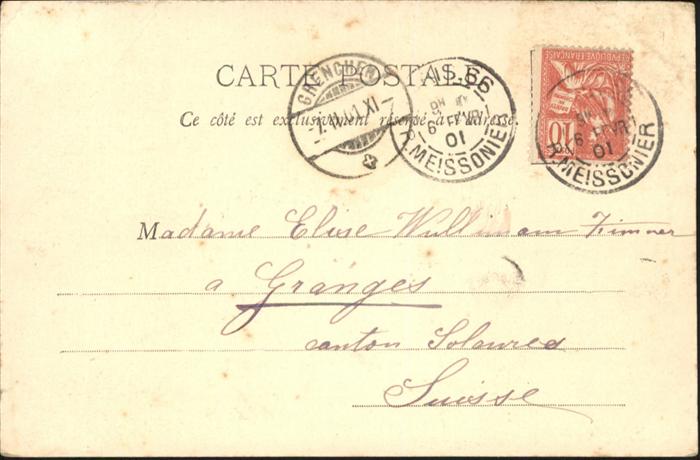 CARTE POSTALE
Ce côté est exclusivement réservé à l'adresse.
GRENCHEN
XI
66
6 FEVR
01
R. MEISSONIER
REPUBLIQUE FRANÇAISE
10
6 FEVR
01
R. MEISSONIER
Madame Elise Wullimann Zimmer
a Granges
canton Soleures
Suisse